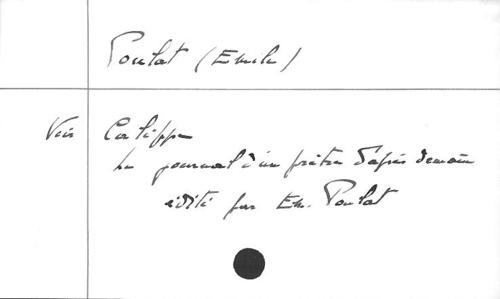 Poulat (Emile)
Voir Calippe
Le journal d'un prêtre d'après demain
édité par Em. Poulat